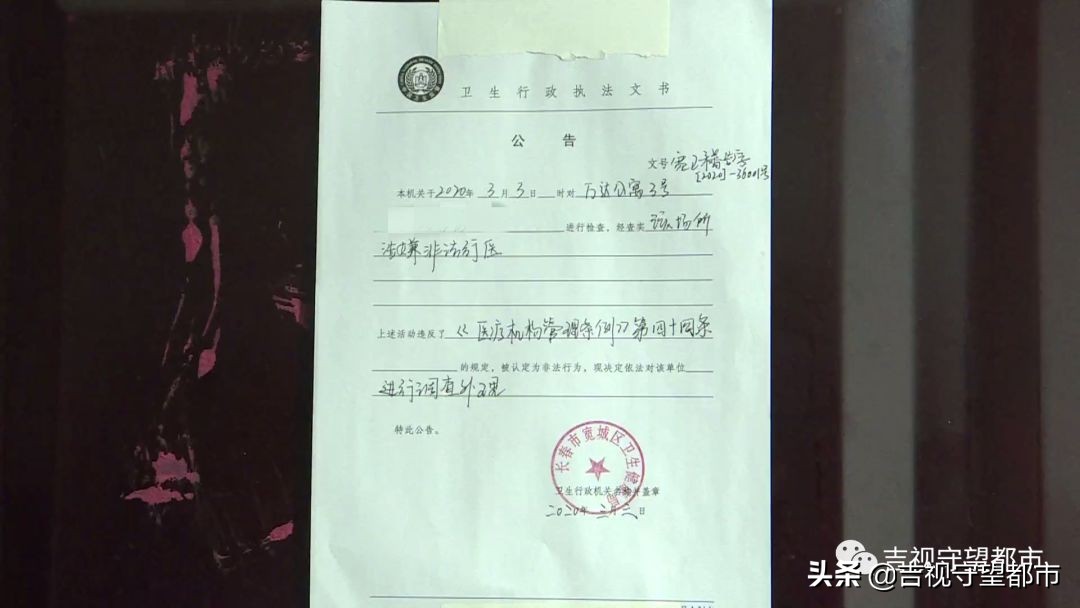 卫生行政执法文书
公 告
文号 宽卫
[2020]-36001号
本机关于2020年3月3日 时对 万达公寓3号
进行检查，经查实 该场所
涉嫌非法行医
上述活动违反了《医疗机构管理条例》第四十四条
的规定，被认定为非法行为，现决定依法对该单位
进行调查处理
特此公告。
长春市宽城区卫生健康局
卫生行政机关名称并盖章
二0二0年三月三日
吉视守望都市
头条 @吉视守望都市